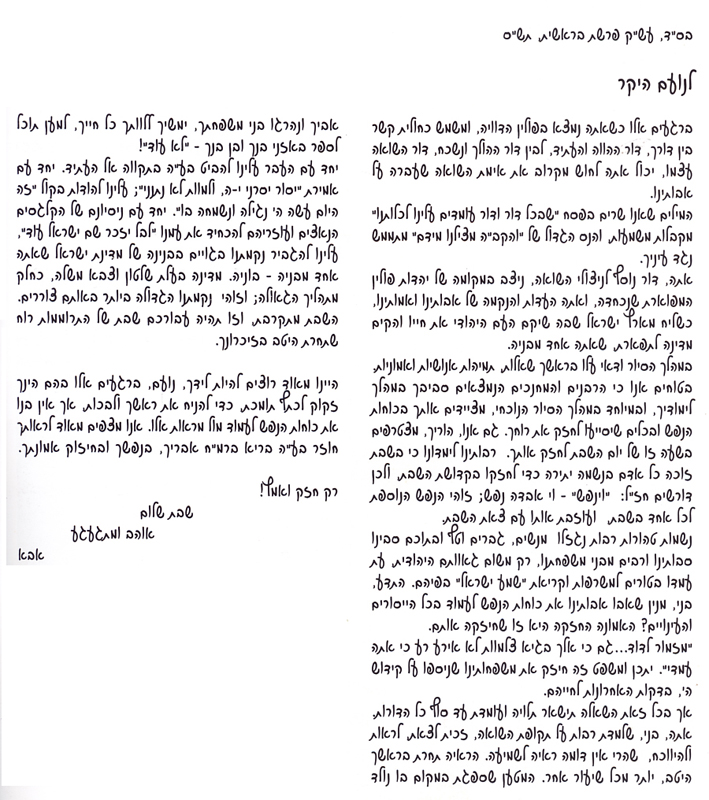 בס״ד, עש״ק פרשת בראשית, תש״ס
לנועם היקר
ברגעים אלו כשאתה נמצא בפולין הדוויה, ומשמש כחולית קשר
בין דורך, דור ההווה והעתיד, לבין דור ההולך ונשכח, דור השואה
עצמו, יכול אתה לחוש מקרוב את אימת השואה שעברה על
אבותינו.
המילים שאנו שרים בפסח ״שבכל דור ודור עומדים עלינו לכלותנו״
מקבלות משמעות, והנס הגדול של ״והקב״ה מצילנו מידם״ מתממש
נגד עיניך.
אתה, דור נוסף לניצולי השואה, ניצב במקומה של יהדות פולין
המפוארת שנכחדה, ואתה העדות והנקמה של אבותינו ואמותינו,
כשליח מארץ ישראל שבה שיקם העם היהודי את חייו והקים
מדינה לתפארת, שאתה אחד מבניה.
במהלך הסיור ודאי עלו בראשך שאלות, תמיהות אנושיות ואמוניות.
בטוחים אנו כי הרבנים והמחנכים הנמצאים סביבך במהלך
לימודיך, ובמיוחד במהלך הסיור הנוכחי, מציידים אותך בכוחות
הנפש ובכלים שיסייעו לחזק את רוחך. גם אנו, הוריך, מצטרפים
בשעה זו של יום השבת לחזק אותך. רבותינו לימדונו כי בשבת
זוכה כל אדם בנשמה יתירה כדי לחזקו בקדושת השבת, ולכן
דורשים חז״ל: ״וינפש״ - וי אבדה נפש; זוהי הנפש הנוספת
לכל אחד בשבת, ועוזבת אותו עם צאת השבת.
נשמות טהורות רבות נגזלו מנשים, גברים וטף ובתוכם סבינו
סבותינו ורבים מבני משפחתנו, רק משום גאוותם היהודית, עת
עמדו בטורים למשרפות וקריאת ״שמע ישראל״ בפיהם. התדע,
בני, מנין שאבו אבותינו את כוחות הנפש לעמוד בכל הייסורים
והעינויים? האמונה החזקה היא זו שחיזקה אותם.
״מזמור לדוד...גם כי אלך בגיא צלמוות לא אירע רע כי אתה
עמדי״. יתכן ומשפט זה חיזק את משפחותינו שניספו על קידוש
ה׳, בדקות האחרונות לחייהם.
אך בכל זאת השאלה תישאר תלויה ועומדת עד סוף כל הדורות.
אתה, בני, שלמדת רבות על תקופת השואה, זכית לצאת, לראות
ולהיווכח, שהרי אין דומה ראיה לשמיעה. הראיה תחרת בראשך
היטב, יותר מכל שיעור אחר. המטען שספגת במקום בו נולד
אביך ונהרגו בני משפחתך, ימשיך ללוותך כל חייך, למען תוכל
לספר באזני בנך ובן בנך - ״לא עוד״!
יחד עם העבר עלינו להביט בע״ה בתקווה אל העתיד. יחד עם
אמירת ״יסור יסרני י-ה, ולמוות לא נתנני״; עלינו להודות בקול ״זה
היום עשה הי נגילה ונשמחה בו״. יחד עם ניסיונם של הקלגסים
הנאצים ועוזריהם להכחיד את עמנו ״לבל יזכר שם ישראל עוד״,
עלינו להגביר נקמתנו בגויים בבנינה של מדינת ישראל שאתה
אחד מבניה - בוניה. מדינה בעלת שלטון וצבא משלה, כחלק
מתהליך הגאולה; וזוהי נקמתנו הגדולה ביותר באותם צוררים.
השבת מתקרבת, וזו תהיה עבורכם שבת של התרוממות רוח
שתחרת היטב בזיכרונך.
היינו מאוד רוצים להיות לידך, נועם, ברגעים אלו בהם הינך
זקוק לכתף תומכת, כדי להניח את ראשך ולבכות, אך אין בנו
את כוחות הנפש לעמוד מול מראות אלו. אנו מצפים מאוד לראותך
חוזר בע״ה בריא ברמ״ח אבריך, בנפשך ובחיזוק אמונתך.
רק חזק ואמץ!
שבת שלום
אוהב ומתגעגע
אבא